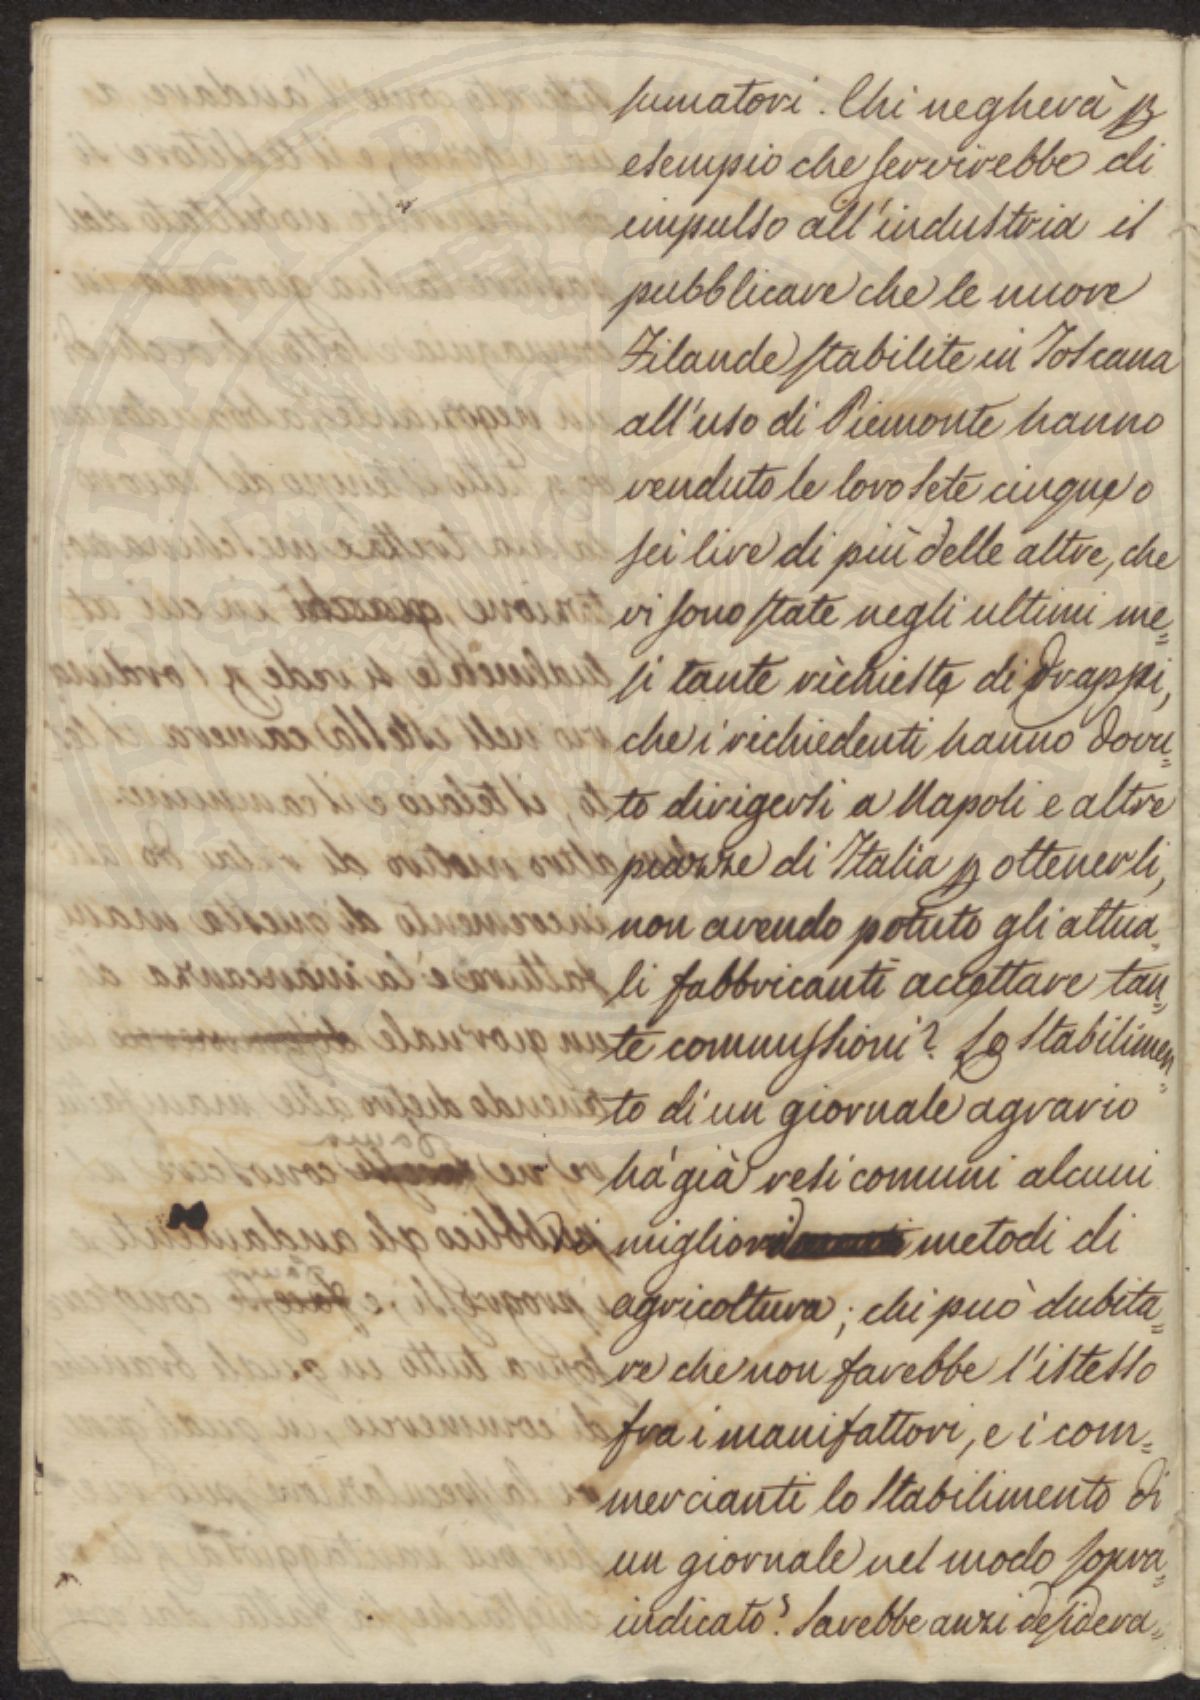 sumatori. Chi negherà p
esempio che servirebbe di
impulso all'industria il
pubblicare che le nuove
Filande stabilite in Toscana
all'uso di Piemonte hanno
venduto le loro sete cinque o
sei lire di più delle altre, che
vi sono state negli ultimi me=
si tante richieste di Drappi,
che i richiedenti hanno dovu=
to dirigersi a Napoli e altre
piazze di Italia p ottenerli,
non avendo potuto gli attua=
li fabbricanti accettare tan=
te commissioni? Lo stabilimen=
to di un giornale agrario
há già resi comuni alcuni
dei migliori metodi di
agricoltura; chi può dubita=
re che non farebbe l'istesso
fra i manifattori, e i com=
mercianti lo stabilimento di
un giornale nel modo sopra=
indicato? Sarebbe anzi desidera=